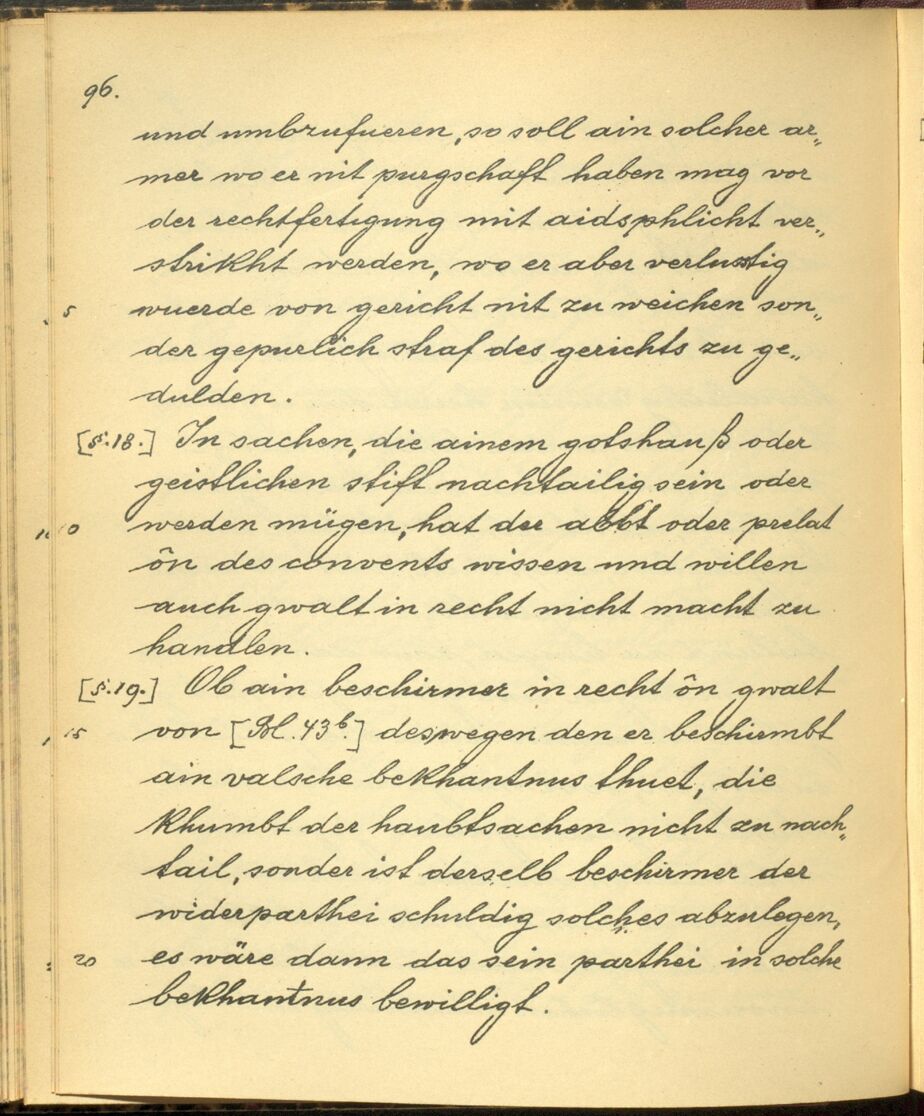 96.
und umbzufueren, so soll ain solcher ar„
mer wo er nit purgschaft haben mag vor
der rechtfertigung mit aidsphlicht ver„
strikht werden, wo er aber verlusstig
5 wuerde von gericht nit zu weichen son„
der gepurlich straf des gerichts zu ge„
dulden.
[§.18.] In sachen, die ainem gotshauß oder
geistlichen stift nachtailig sein oder
10 werden mügen, hat der abbt oder prelat
ôn des convents wissen und willen
auch gwalt in recht nicht macht zu
handlen.
[§.19.] Ob ain beschirmer in recht ôn gwalt
15 von [Bl. 43b.] deswegen den er beschirmbt
ain valsche bekhantnus thuet, die
khumbt der haubtsachen nicht zu nach„
tail, sonder ist derselb beschirmer der
widerparthei schuldig solches abzulegen,
20 es wäre dann das sein parthei in solche
bekhantnus bewilligt.